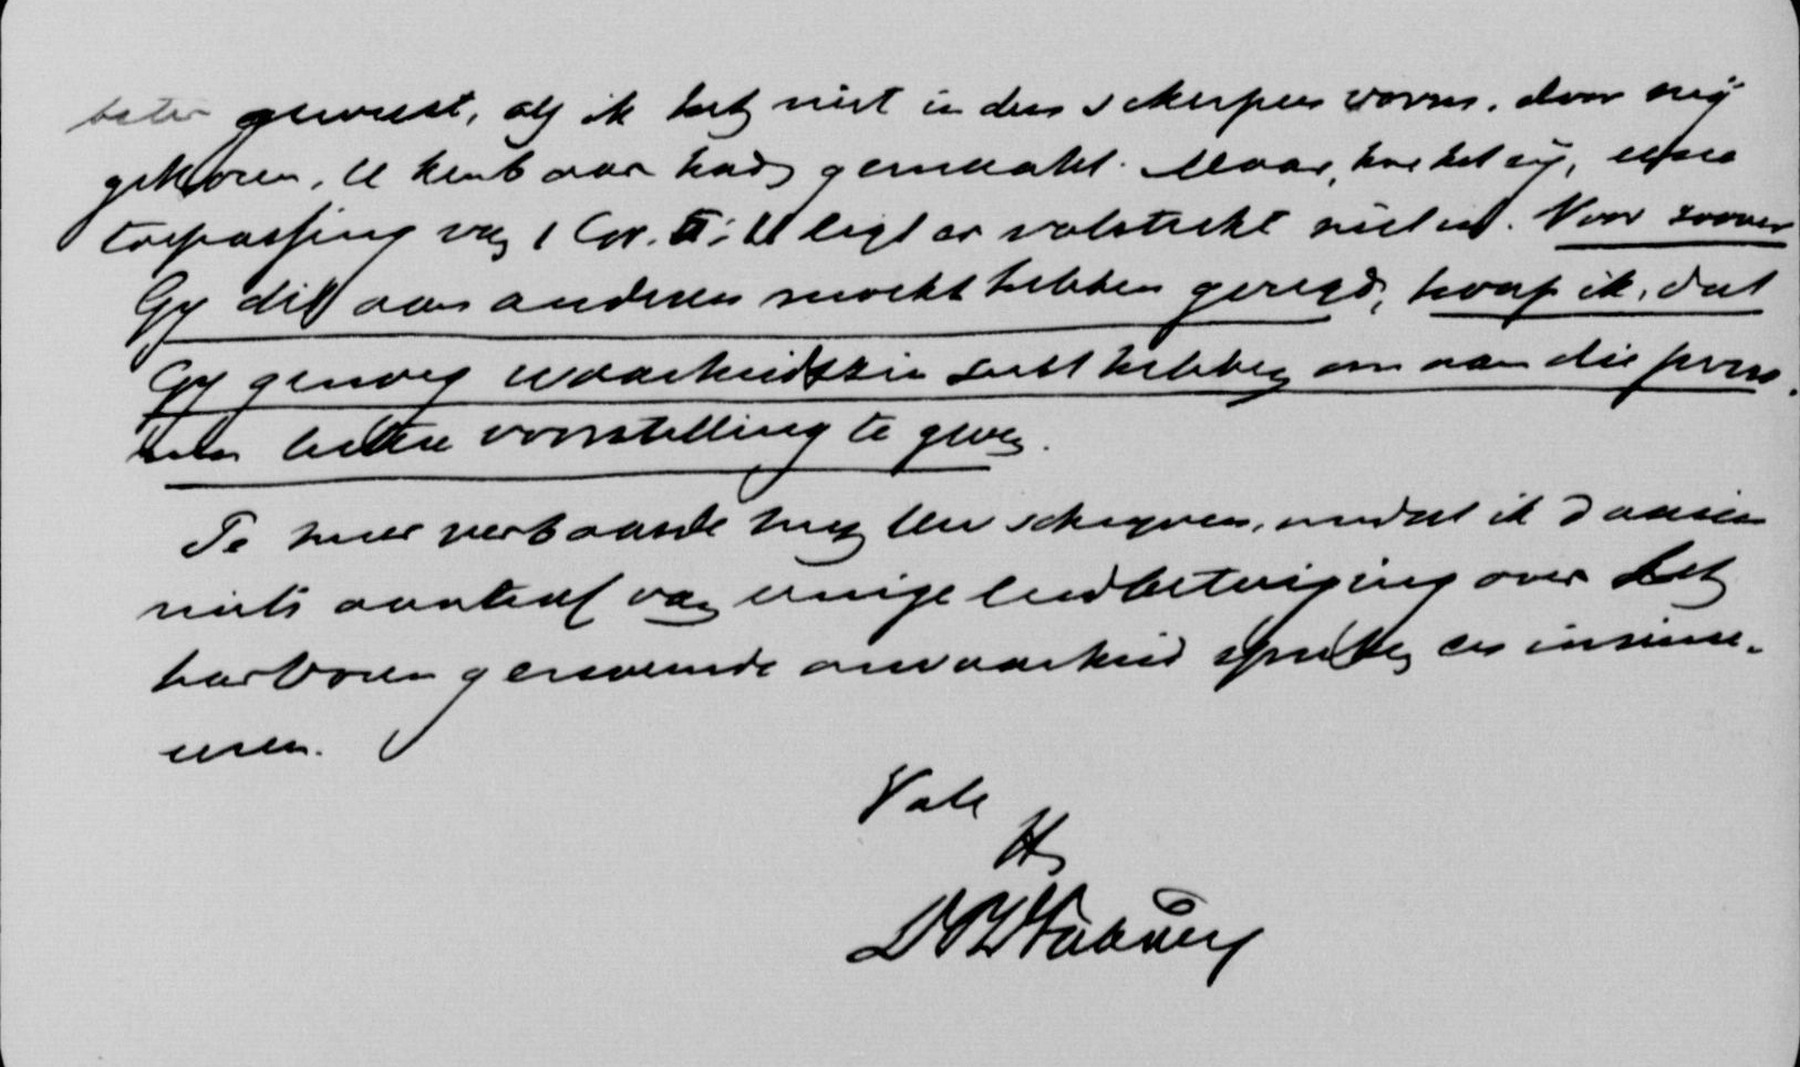 beter geweest, als ik het niet in den scherpen vorm, door mij
gekozen, U kenbaar had gemaakt. Maar, hoe het zij, eene
toepassing van 1 Cor. II: ligt er volstrekt niet in. Voor zoover
Gy dit aan anderen mocht hebben gezegd, hoop ik, dat
Gy genoeg waarheidszin zult hebben om aan die pers.
een betere voorstelling te geven.
Te meer verbaasde my Uw schryven, omdat ik daarin
niets aantref van eenige leedbetuiging over het
hartvoren genoemde onwaarheid spreken en insinu-
eeren.
Vale